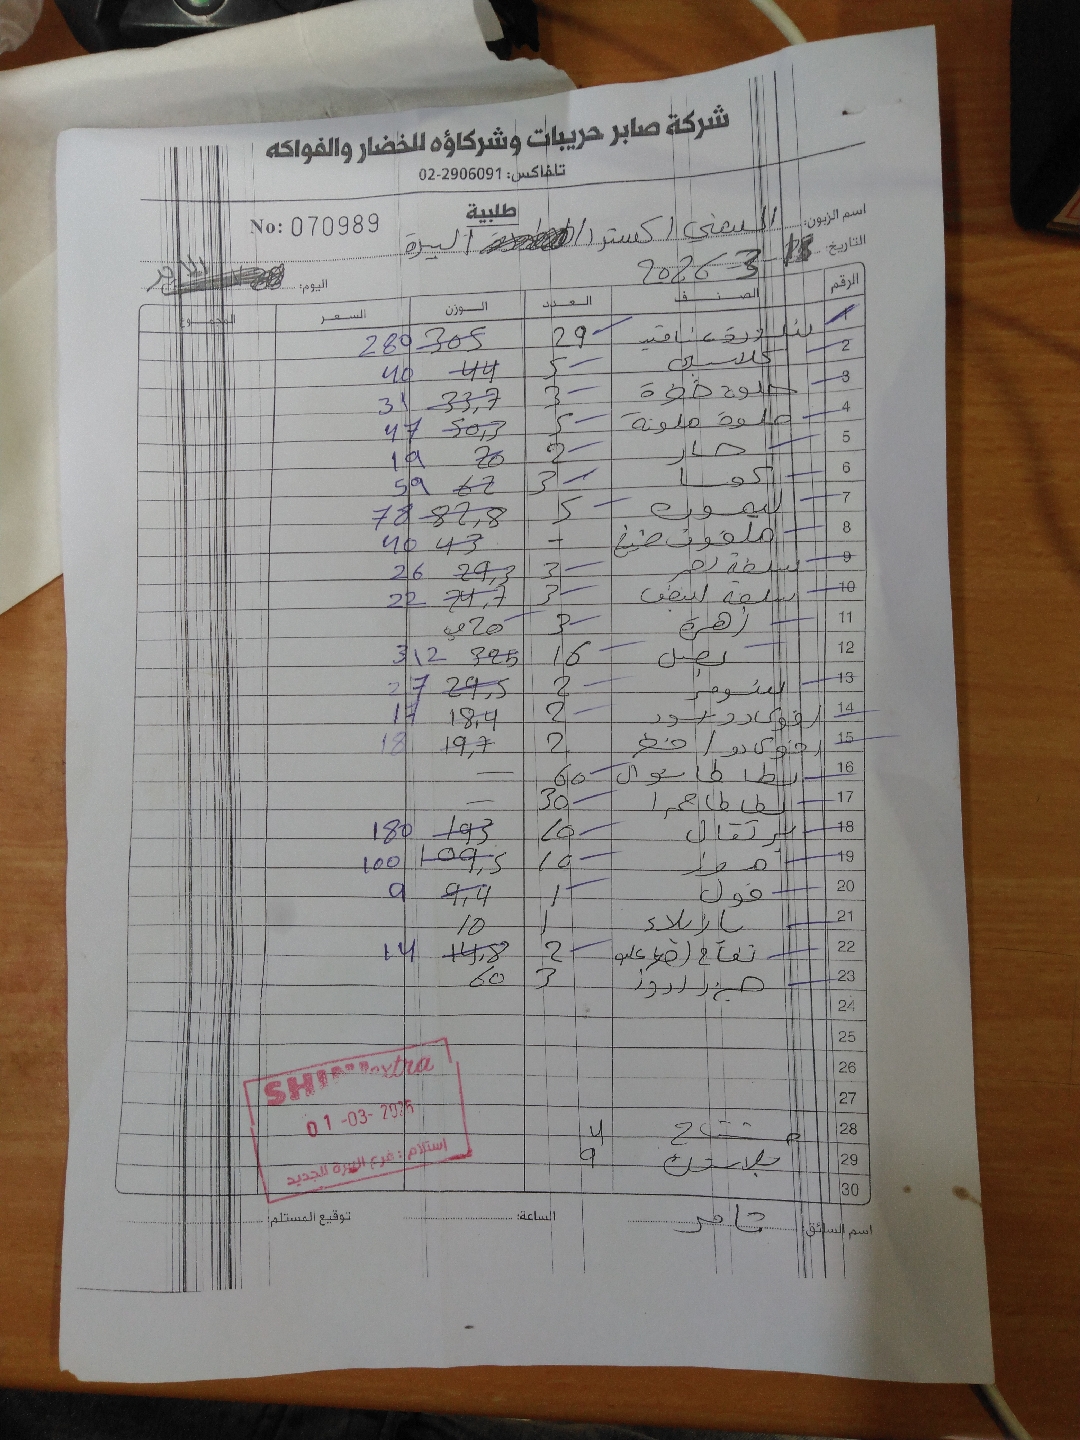 شركة صابر حريبات وشركاؤه للخضار والفواكه
تلفاكس: 02-2906091
طلبية
No: 070989
اسم الزبون: الشني اكسترا البيرة
التاريخ: 3 2026
اليوم: الاحد
الرقم الصنف العدد الوزن السعر المجموع
1 بندورة 29 305 280
2 5 44 40
3 حلوة خضرة 3 33,7 31
4 حلوة ملونة 5 50,3 47
5 حار 2 20 19
6 كوسا 3 62 59
7 ليمون 5 82,8 78
8 ملفوف - 43 40
9 سلطة احمر 3 29,3 26
10 سلطة ابيض 3 24,7 22
11 زهرة 3 20
12 بصل 16 325 312
13 2 29,5 27
14 افوكادو اسود 2 18,4 17
15 افوكادو اخضر 2 19,7 18
16 بطاطا 60 —
17 بطاطا حمرا 30 —
18 برتقال 10 193 180
19 موز 10 109,5 100
20 فول 1 9,4 9
21 بازيلاء 1 10
22 تفاح اخضر 2 14,8 14
23 3 60
24
25
26
27
28 مشتاح 4
29 بلاستيك 9
30
SHINI extra
01-03-2026
استلام : فرع البيرة الجديد
اسم السائق: تامر
الساعة:
توقيع المستلم: